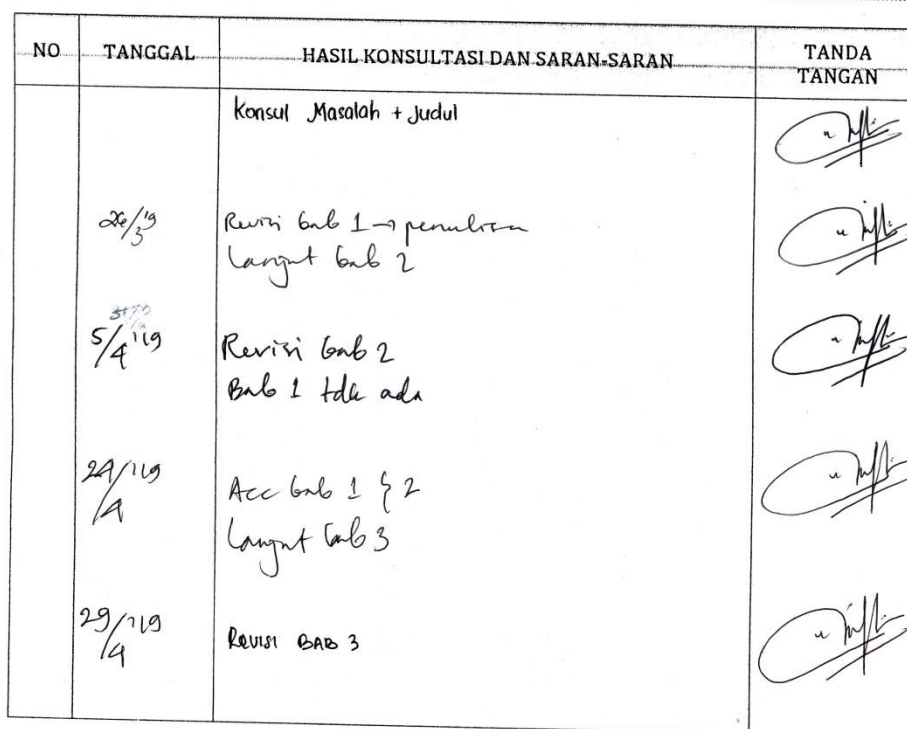 NO TANGGAL HASIL KONSULTASI DAN SARAN-SARAN TANDA TANGAN
Konsul Masalah + Judul
26/3 '19 Revisi bab 1 → penulisan
Lanjut bab 2
5/4 '19 Revisi bab 2
Bab 1 tdk ada
24/4 '19 Acc bab 1 & 2
Lanjut bab 3
29/4 '19 Revisi BAB 3